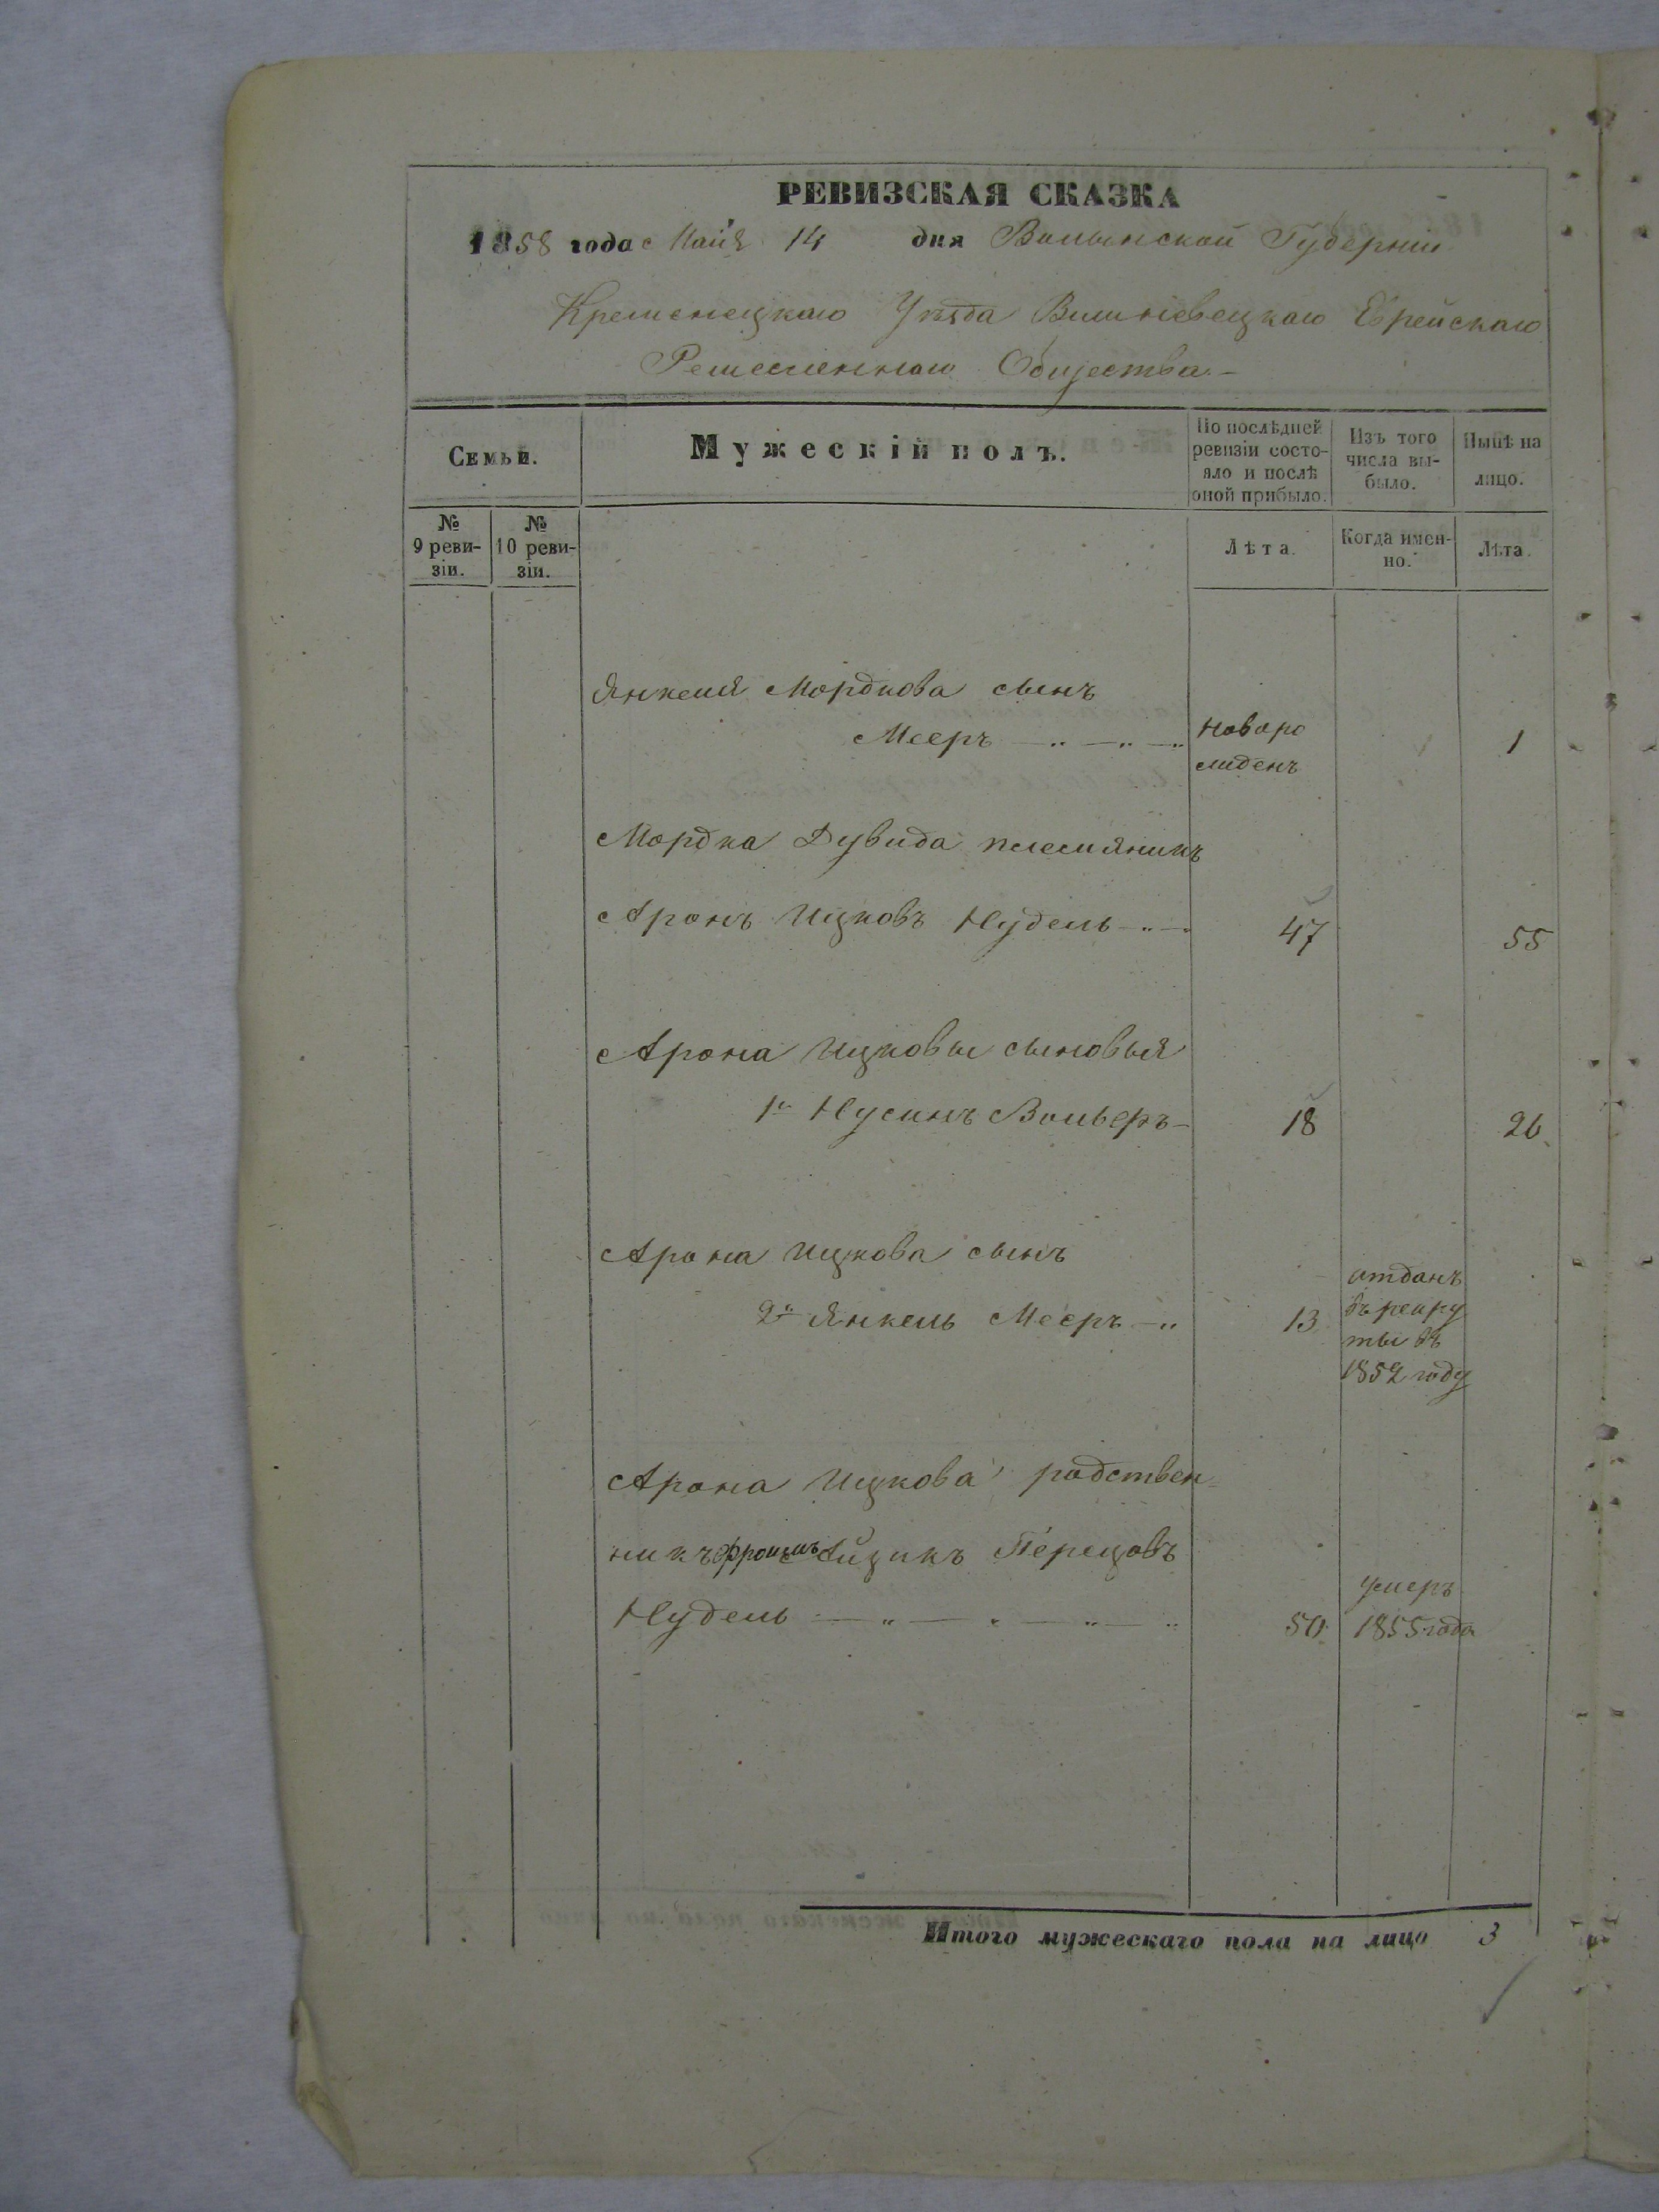 РЕВИЗСКАЯ СКАЗКА
1858 года Мая 14 дня Волынской Губерніи
Кременецкаго Уѣзда Вишневецкаго Еврейскаго
Ремесленнаго Общества.-
Семьи.
Мужескій полъ.
По послѣдней
ревизіи состо-
яло и послѣ
оной прибыло.
Изъ того
числа вы-
было.
Нынѣ на
лицо.
№
9 реви-
зіи.
№
10 реви-
зіи.
Лѣта.
Когда имен-
но.
Лѣта.
Янкеля Мордкова сынъ
Мееръ новоро 1
жденъ
Мордка Дувида племяникъ
Аронъ Ицковъ Нудель 47 55
Арона Ицковы сыновья
1й Нусинъ Вольфъ 18 26
Арона Ицкова сынъ
2й Янкель Мееръ 13
отданъ
въ рекру
ты въ
1852 году
Арона Ицкова родствен-
никъ Фроимъ Айзикъ Перецовъ
Нудель 50
умеръ
1855 года
Итого мужескаго пола на лицо 3